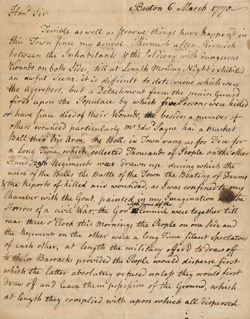 Boston 6 March 1770
Hond Sir
Terrible as well as strange things have happened in
this Town since my arrival, Skirmish after Skirmish
between the Inhabitants & the Soldiery with dangerous
Wounds on both Sides, till at length Monday Night exhibited
an awful Scene, it is difficult to determine which were
the aggressors, but a Detachment from the main Guard
fired upon the Populace by which five Persons were killed
or have since died of their Wounds, besides a number of
others wounded particularly Mr Edd Payne has a musket
Ball thro' his arm. the Bells in Town rang as for Fire for
a long Time, which collected Thousands of People on the other
Hand 29th Regiment was drawn up, during which the
noise of the Bells the Rattle of the Town the Beating of Drums
& the Reports of killed and wounded, as I was confined to my
Chamber with the Gout, painted in my imagination all the
Horrors of a civil War, the Govr & Council were together till
near three o'Clock this morning, the People on one side and
the Regiment on the other were a long Time silent Spectators
of each other, at length the military offerd to draw off
to their Barracks provided the People would disperse first
which the latter absolutely refused unless they would first
draw off and leave them in possession of the Ground, which
at length they complied with upon which all dispersed